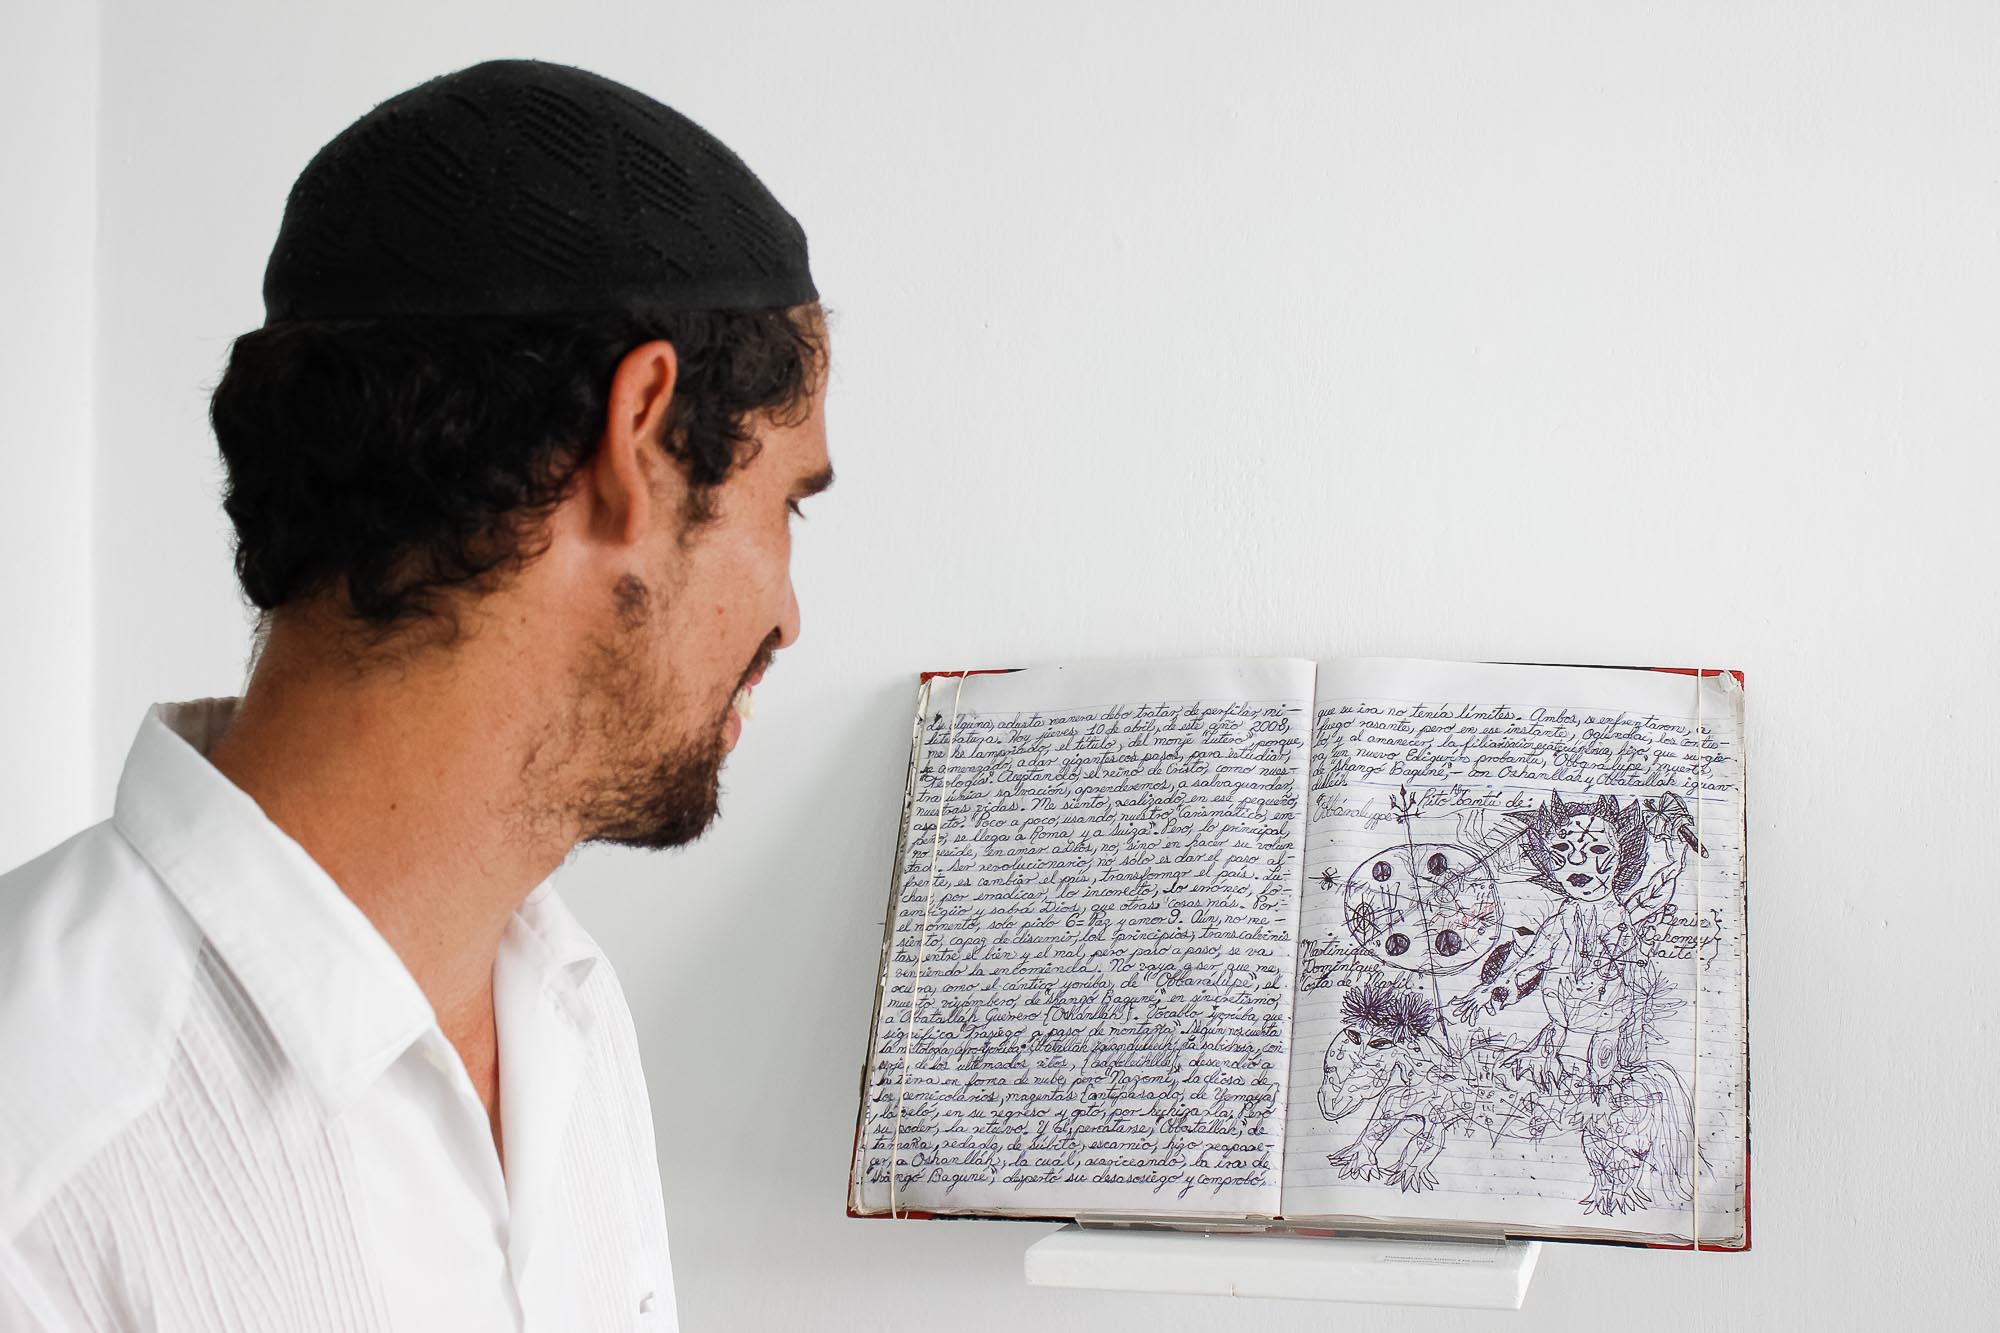 alguna, adusta manera debo tratar, de perfilar, mi-
literatura. Hoy jueves, 10 de abril, de este año 2008,
me he lampribado, el título, del monje "lutero" porque,
se comenzado, a dar gigantescos pasos, para estudiar,
"Teología". Aceptando, el reino de Cristo, como nues-
tra única salvación, aprenderemos, a salvaguardar,
nuestras vidas. Me siento, realizado, en ese pequeño,
aspecto. Poco a poco, usando, nuestro Carismático, em-
peño, se llega a Roma y a Suiza. Pero, lo principal,
no reside, en amar a Dios, no, sino en hacer su volun
tad. Ser revolucionario, no sólo es dar el paso al-
frente, es cambiar el país, transformar el país. Lu-
char, por erradicar, lo incorrecto, lo erróneo, lo-
ambigüo y sabrá Dios, que otras cosas más. Por-
el momento, solo pido 6- Paz y amor 9. Aún, no me-
siento, capaz de discernir, los principios,
tas entre el bien y el mal, pero paso a paso, se va
venciendo la encomienda. No vaya a ser que me,
ocurra, como el cántico yoriba, de "Obbaralúpe", el
muerto de "Shangó Baguné", en sincretismo,
a Obatallah Guerrero {Oshanllah}. Vocablo yoriba, que-
significa "Trasiego a paso de montaña". Según nos cuenta
la mitología afro-yoriba: Obatallah la sabidosa, con
de los ultimados ritos, descendió a
la tierra en forma de nube, pero Nazomi, la diosa de
los, semicolários, magentas {antepasado, de Yemayá}
la celó, en su regreso y optó, por hechizarla. Pero
su poder, la retuvo. Y al, percatarse, "Obbatallah," de
tamaña, redada, de súbito, escarnio, hizo reapare-
cer, a Oshanlláh, la cuál, la ira de
"Shangó Baguné", despertó su desasosiego y comprobó,
que su ira no tenía límites. Ambos, se enfrentaron, a
fuego rasante, pero en ese instante, Ogundai, los contu-
vo, y al amanecer, la hizo, que surgie-
ra, un nuevo "Obbaralupe", muerto,
de "Shangó Baguné", - con Oshanllah y Obbatallah
Rito Santú de:
"Obbáralupe"
Benin
Dahomey
Haití
"Martinique"
"Dominique"
"Costa de Marfil".